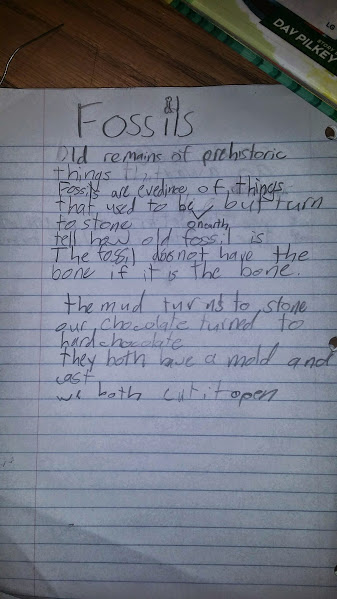 LG
DAV PILKEY
Fossils
Old remains of prehistoric
things
Fossils are evedince of things
that used to be but turn
on earth
to stone
tell how old fossil is
The fossil does not have the
bone if it is the bone.
the mud turns to stone
our chocolate turned to
hard chocolate
they both have a mold and
cast
we both cut it open